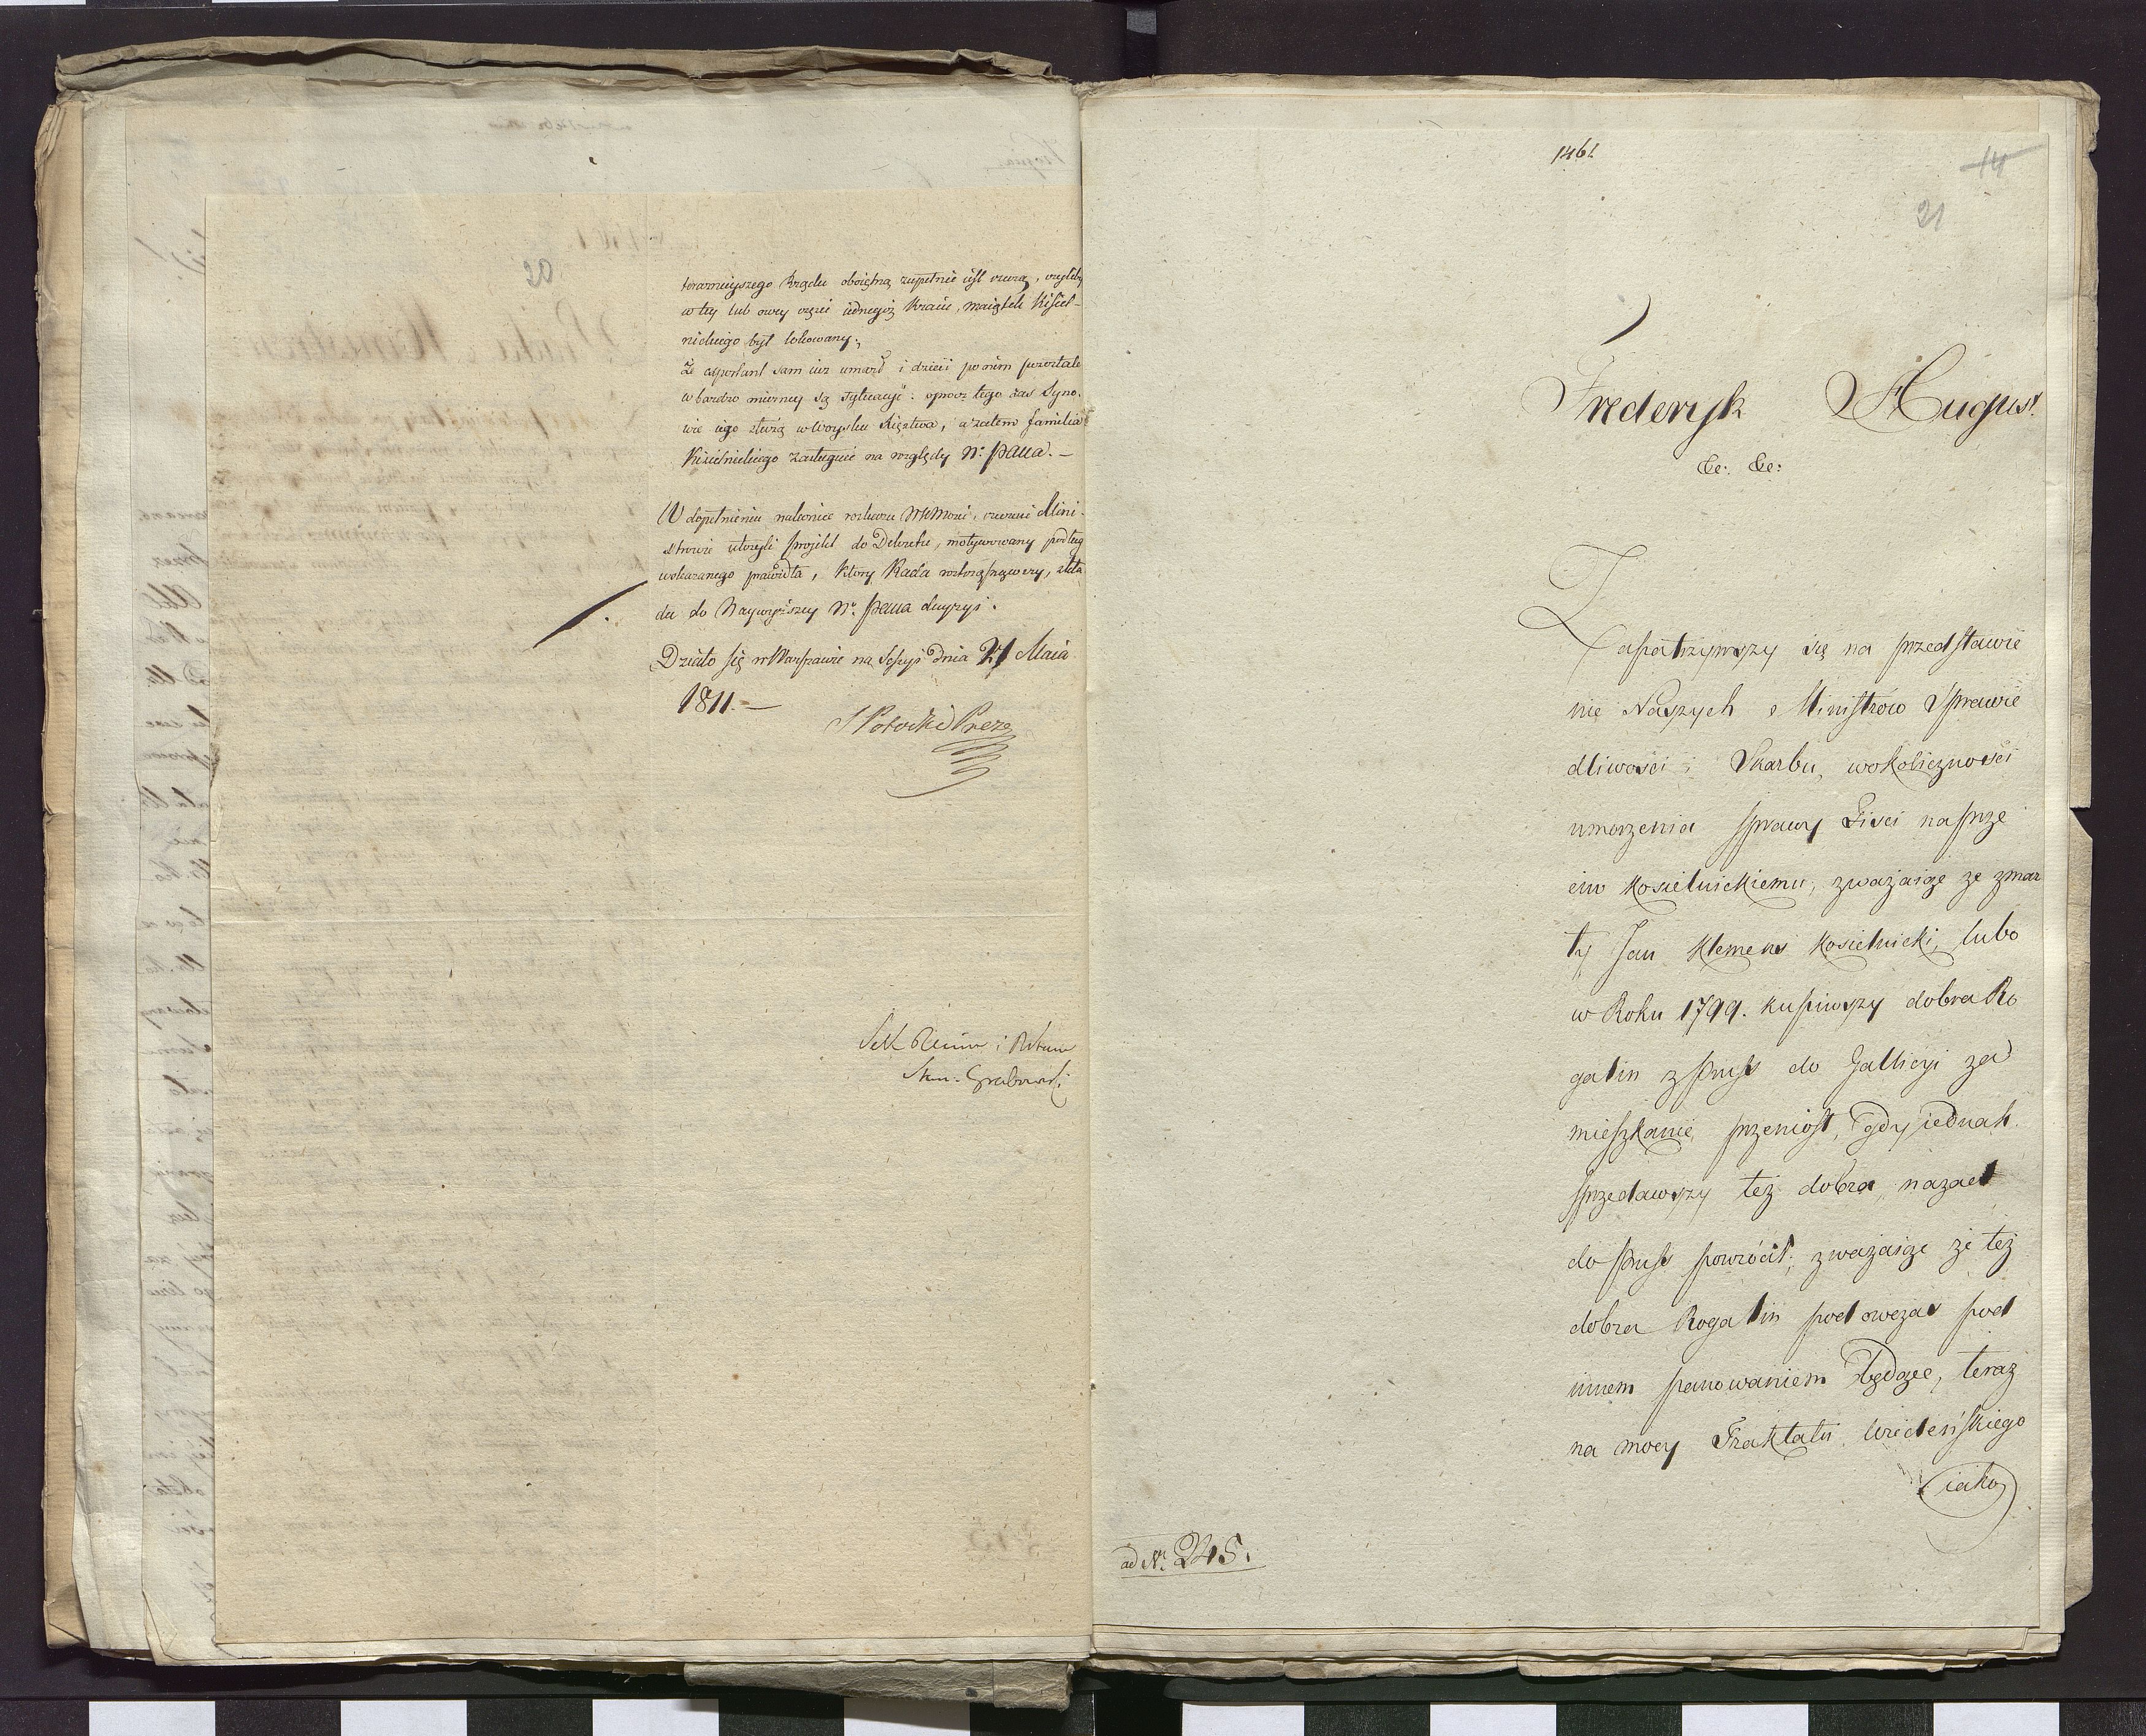 20
teraznieyszego Rządu oboiętną zupełnie iest rzeczą, czyliby
w tey lub owey części iednegoż Kraiu, maiątek Kisiel-
nickiego był lokowany.,
Że exportant sam iuż umarł i dzieci po nim pozostałe
w bardzo mierney są sytuacyi: oprocz tego zaś Syno-
wie iego służą w Woysku Xięztwa, a zatem familia
Kisielnickiego zasługuie na względy Nº: Pana. —
W dopełnieniu nakoniec rozkazu WKMości, rzeczeni Mini-
strowie ułożyli projekt do Dekretu, motywowany podług
wskazanego prawidła, który Rada roztrząsnąwszy, skła-
da do Naywyższey Nº. Pana decyzyi.
Działo się w Warszawie na Sessyi dnia 21 Maia
1811. —
S Potocki Prezes
Grabowski
1461
14
21
Frederyk August.
&c: &c:
Zapatrzywszy się na przedstawie
nie Naszych Ministrow Sprawie
dliwości i Skarbu, w okoliczności
umorzenia sprawy Fisci naprze
ciw Kosielnickiemu, zważaiąc że zmar
ły Jan Klemens Kosielnicki, lubo
w Roku 1799. kupiwszy dobra Ro
gatin z Prus do Gallicyi za
mieszkanie przeniosł, gdy iednak
sprzedawszy też dobra, nazad
do Prus powrócił; zważaiąc że też
dobra Rogatin pod owczas pod
innem panowaniem będące, teraz
na mocy Traktatu Wiedeńskiego
iako
ad Nr. 245.